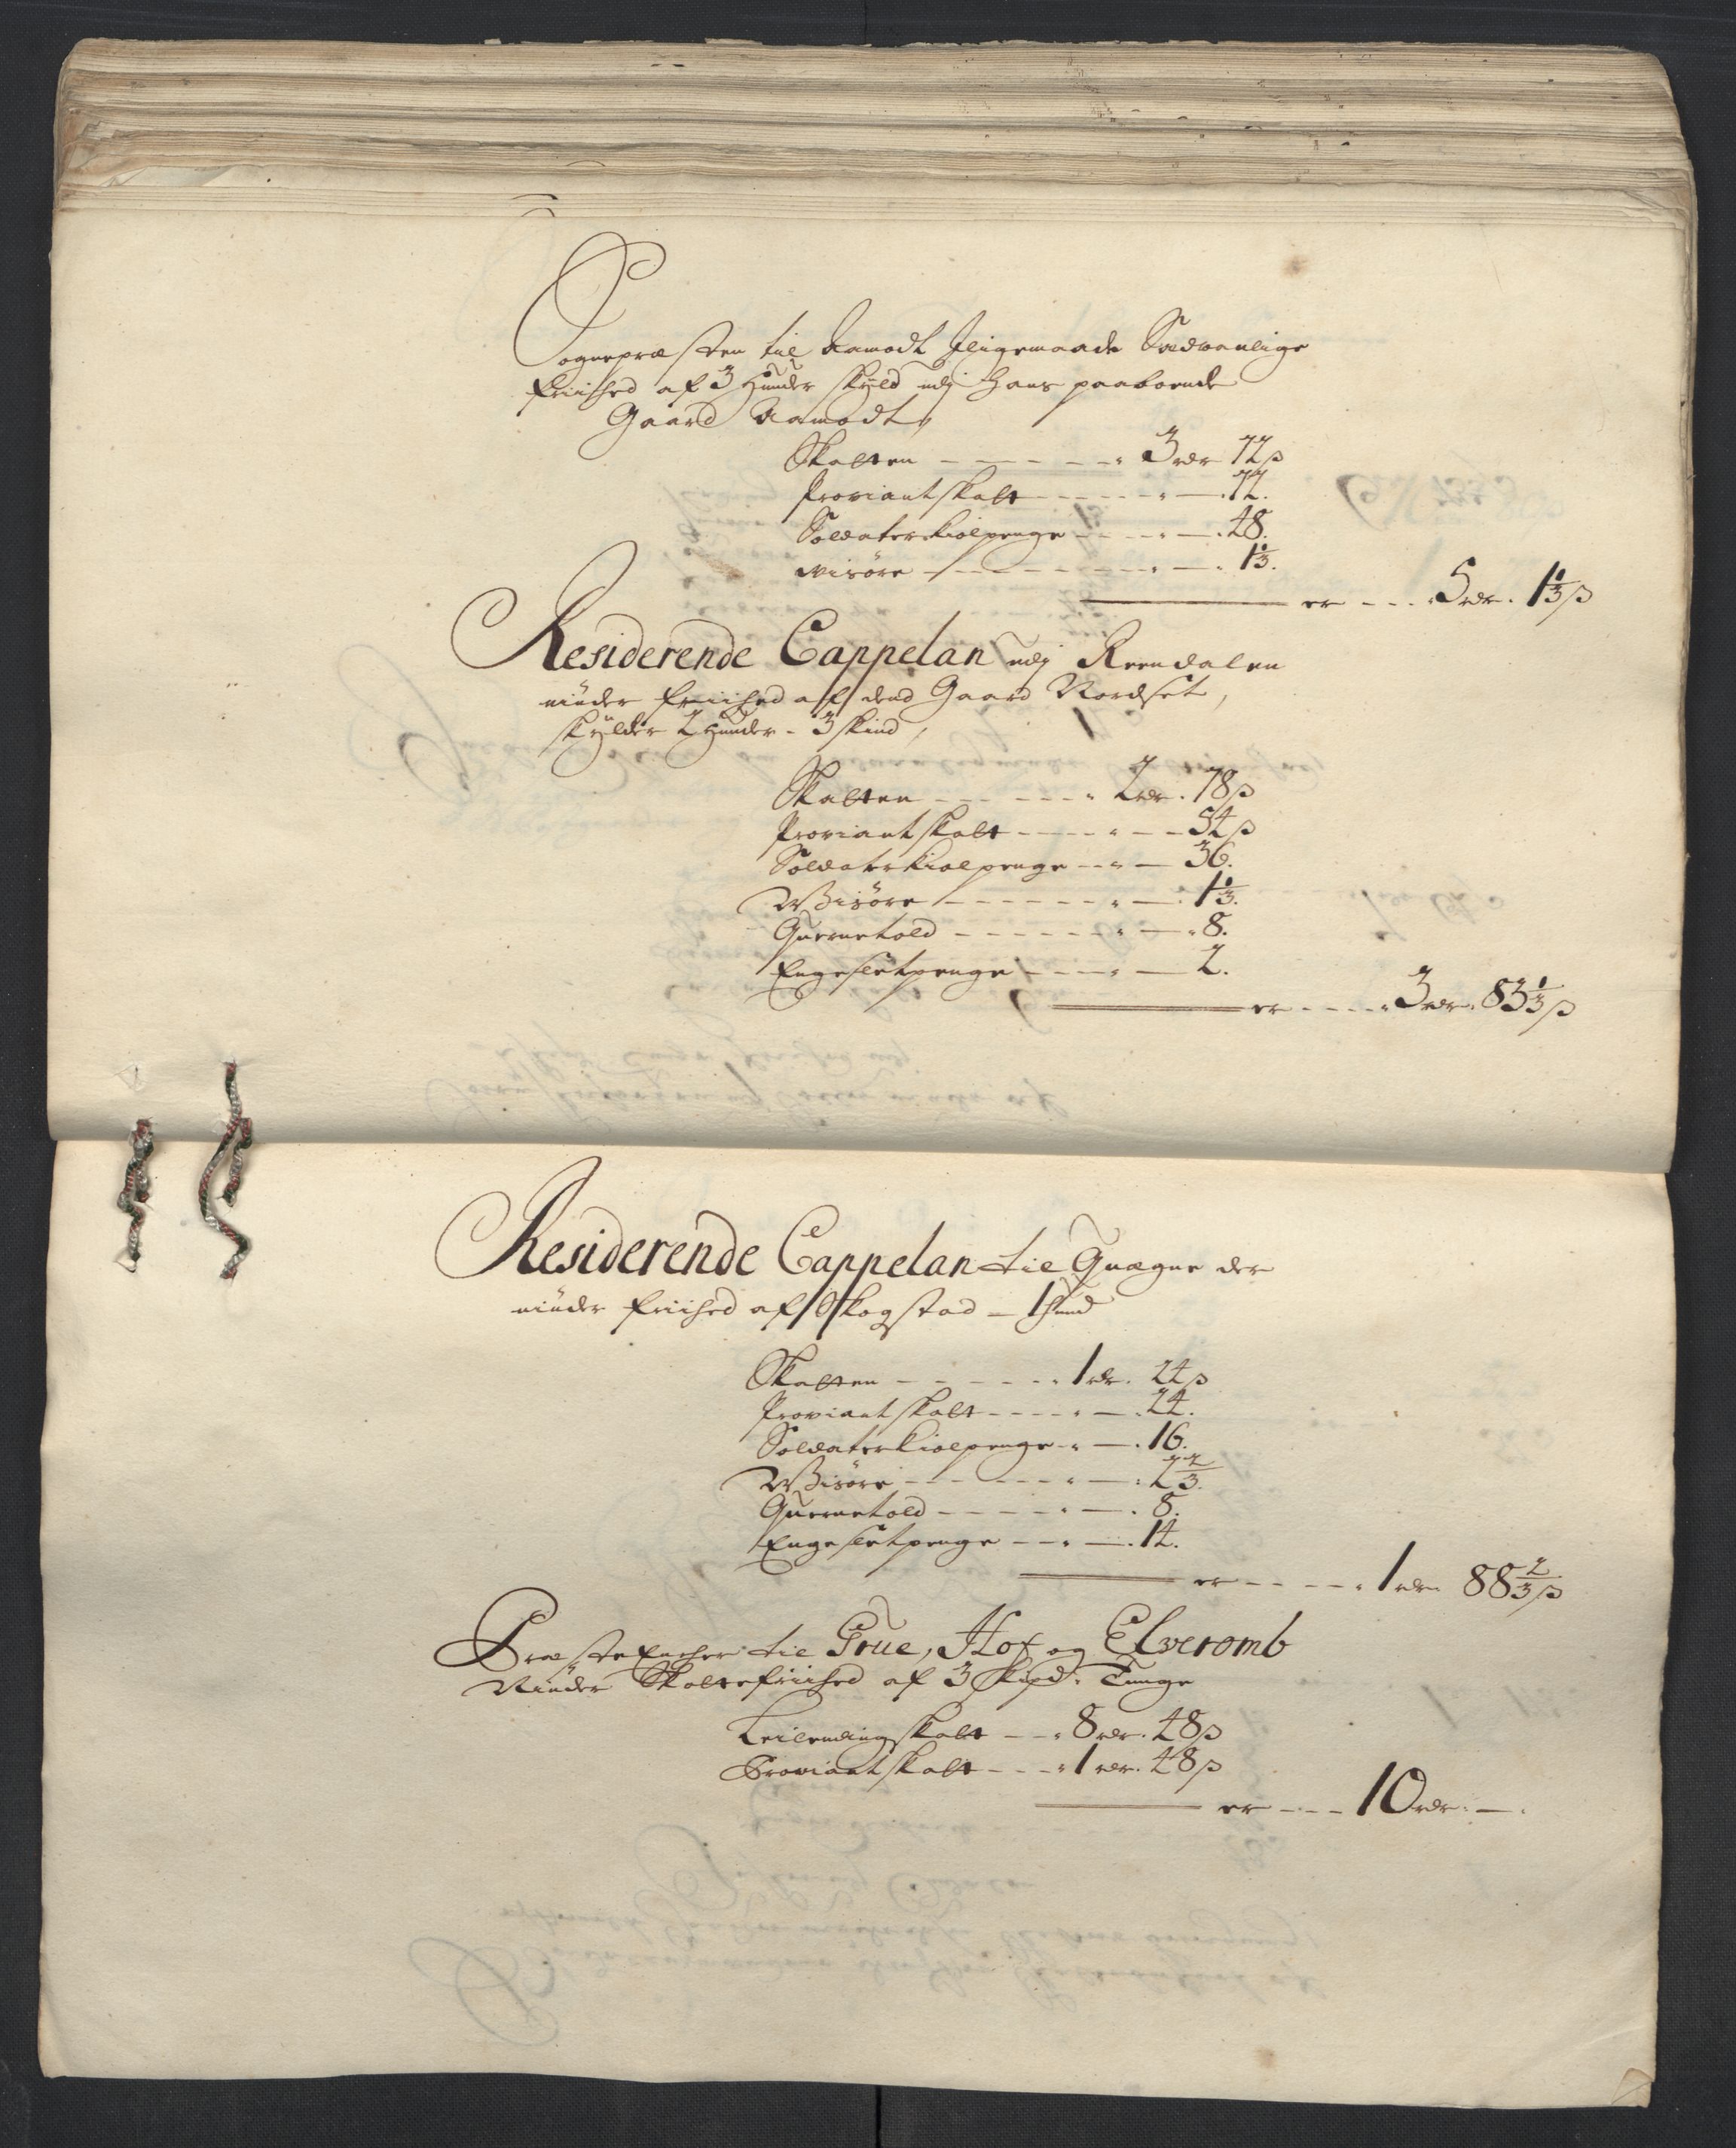 Sognepræsten til Aamodt Iligemaade Sædvanlige
friihed af 3 Hunder skyld udj hans paaboende
Gaard Aamodt,
Skatten - - - - - - 3 rdr 72 ß
Proviantskatt - - - - - 72.
Soldaterkiolpenge - - - - 48.
Wisøre - - - - - - - 1 1/3.
er - - - 5 rdr. 1 1/3 ß
Residerende Cappelan udj Reendalen
niuder friihed af dend Gaard Nordset,
skylder 2 Hunder - 3 skind,
Skatten - - - - - 2 rdr. 78 ß
Proviantskatt - - - - - 54 ß
Soldaterkiolpenge - - - 36.
Wisøre - - - - - - - 1 1/3.
Quernetold - - - - - - 8.
Engesletpenge - - - - 2.
er - - - - 3 rdr. 83 1/3 ß
Residerende Cappelan til Quægne der
niuder friihed af Skogstad - 1 hund
Skatten - - - - - - 1 rdr. 24 ß
Proviantskatt - - - - - 24.
Soldaterkiolpenge - - 16.
Wisøre - - - - - - 2 2/3.
Quernetold - - - - - 8.
Engesletpenge - - - 14.
er - - - - - 1 rdr 88 2/3 ß
PræsteEncher til Grue, Hof og Elveromb
Niuder Skattefriihed af 3 Skpd: Tunge
Leilendingskatt - - 8 rdr. 48 ß
Proviantskatt - - - 1 rdr. 48 ß
er - - - 10 rdr: -